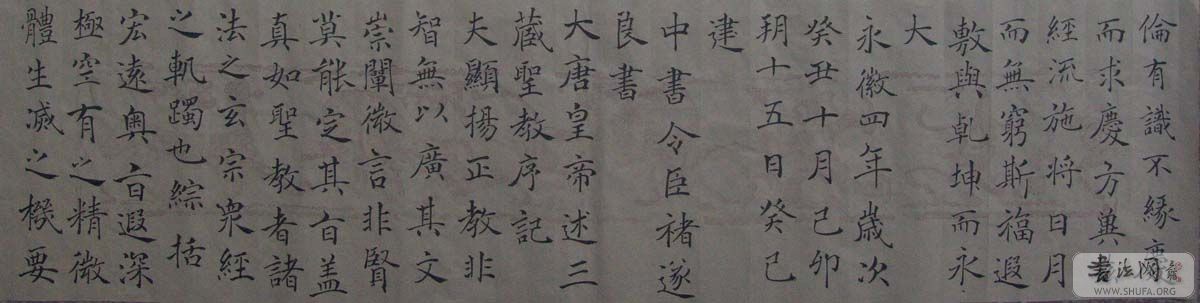 倫有識不緣慶
而求慶方冀
經流施將日月
而無窮斯福遐
敷與乾坤而永
大
永徽四年歲次
癸丑十月己卯
朔十五日癸巳
建
中書令臣褚遂
良書
大唐皇帝述三
藏聖教序記
夫顯揚正教非
智無以廣其文
崇闡微言非賢
莫能定其旨盖
真如聖教者諸
法之玄宗衆經
之軌躅也綜括
宏遠奥旨遐深
極空有之精微
體生滅之機要
书法网
WWW.SHUFA.ORG